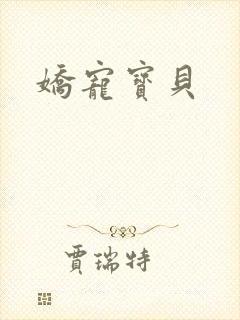 嬌寵寶貝
賈瑞特